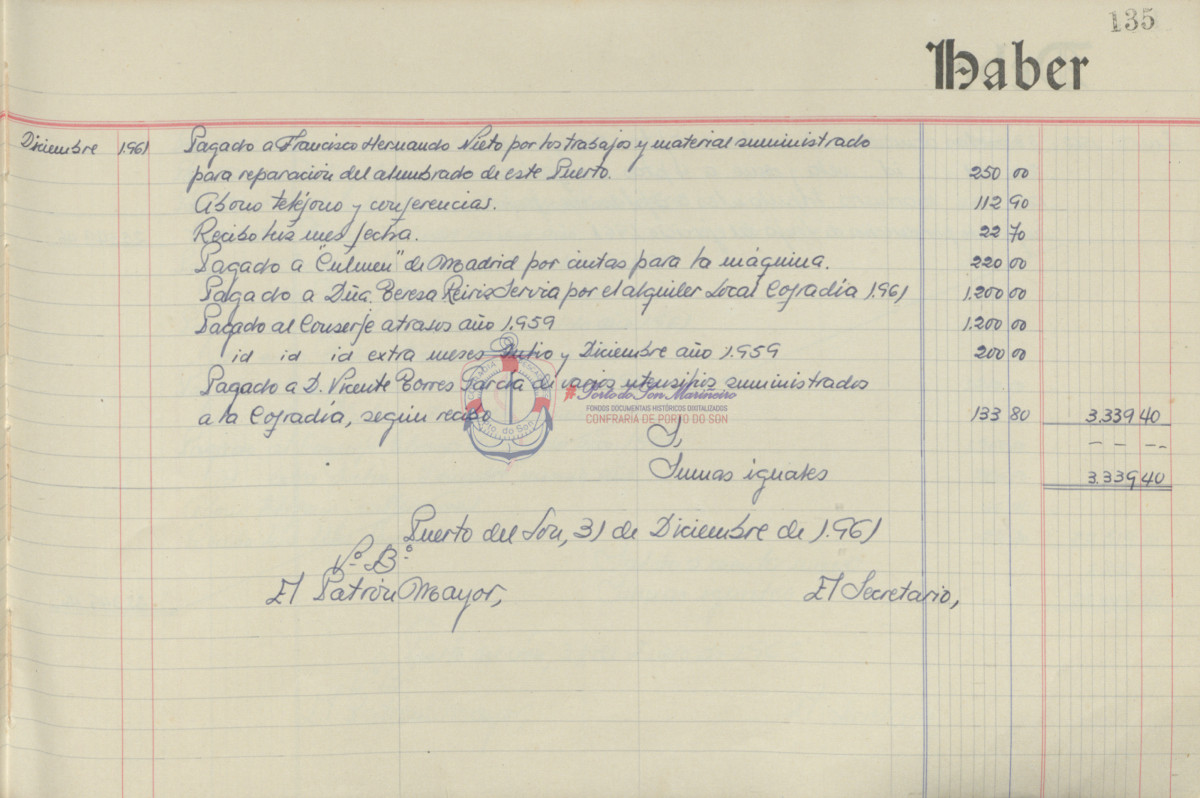 135
Haber
Diciembre 1.961 Pagado a Francisco Hernando Nieto por los trabajos y material suministrado
para reparación del alumbrado de este Puerto. 250 00
Abono teléfono y conferencias. 112 90
Recibo luz mes fecha. 22 70
Pagado a "Culmen" de Madrid por cintas para la máquina. 220 00
Pagado a Dña. Teresa Reiriz Servia por el alquiler Local Cofradía 1.961 1.200 00
Pagado al Conserje atrasos año 1.959 1.200 00
id id id extra meses Julio y Diciembre año 1.959 200 00
Pagado a D. Vicente Torres García de varios utensilios suministrados
a la Cofradía, según recibo 133 80 3.339 40
- - --
Sumas iguales 3.339 40
Puerto del Son, 31 de Diciembre de 1.961
Vº Bº
El Patrón Mayor, El Secretario,
#Porto do Son Mariñeiro
FONDOS DOCUMENTAIS HISTÓRICOS DIXITALIZADOS
CONFRARÍA DE PORTO DO SON